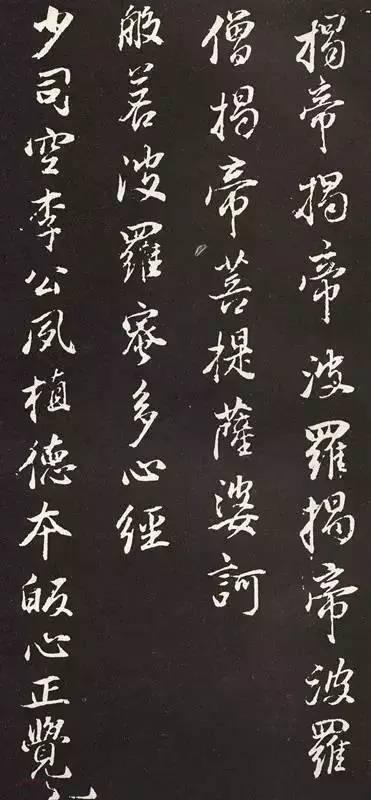 揭帝揭帝波羅揭帝波羅
僧揭帝菩提薩婆訶
般若波羅蜜多心經
少司空李公夙植德本皈心正覺